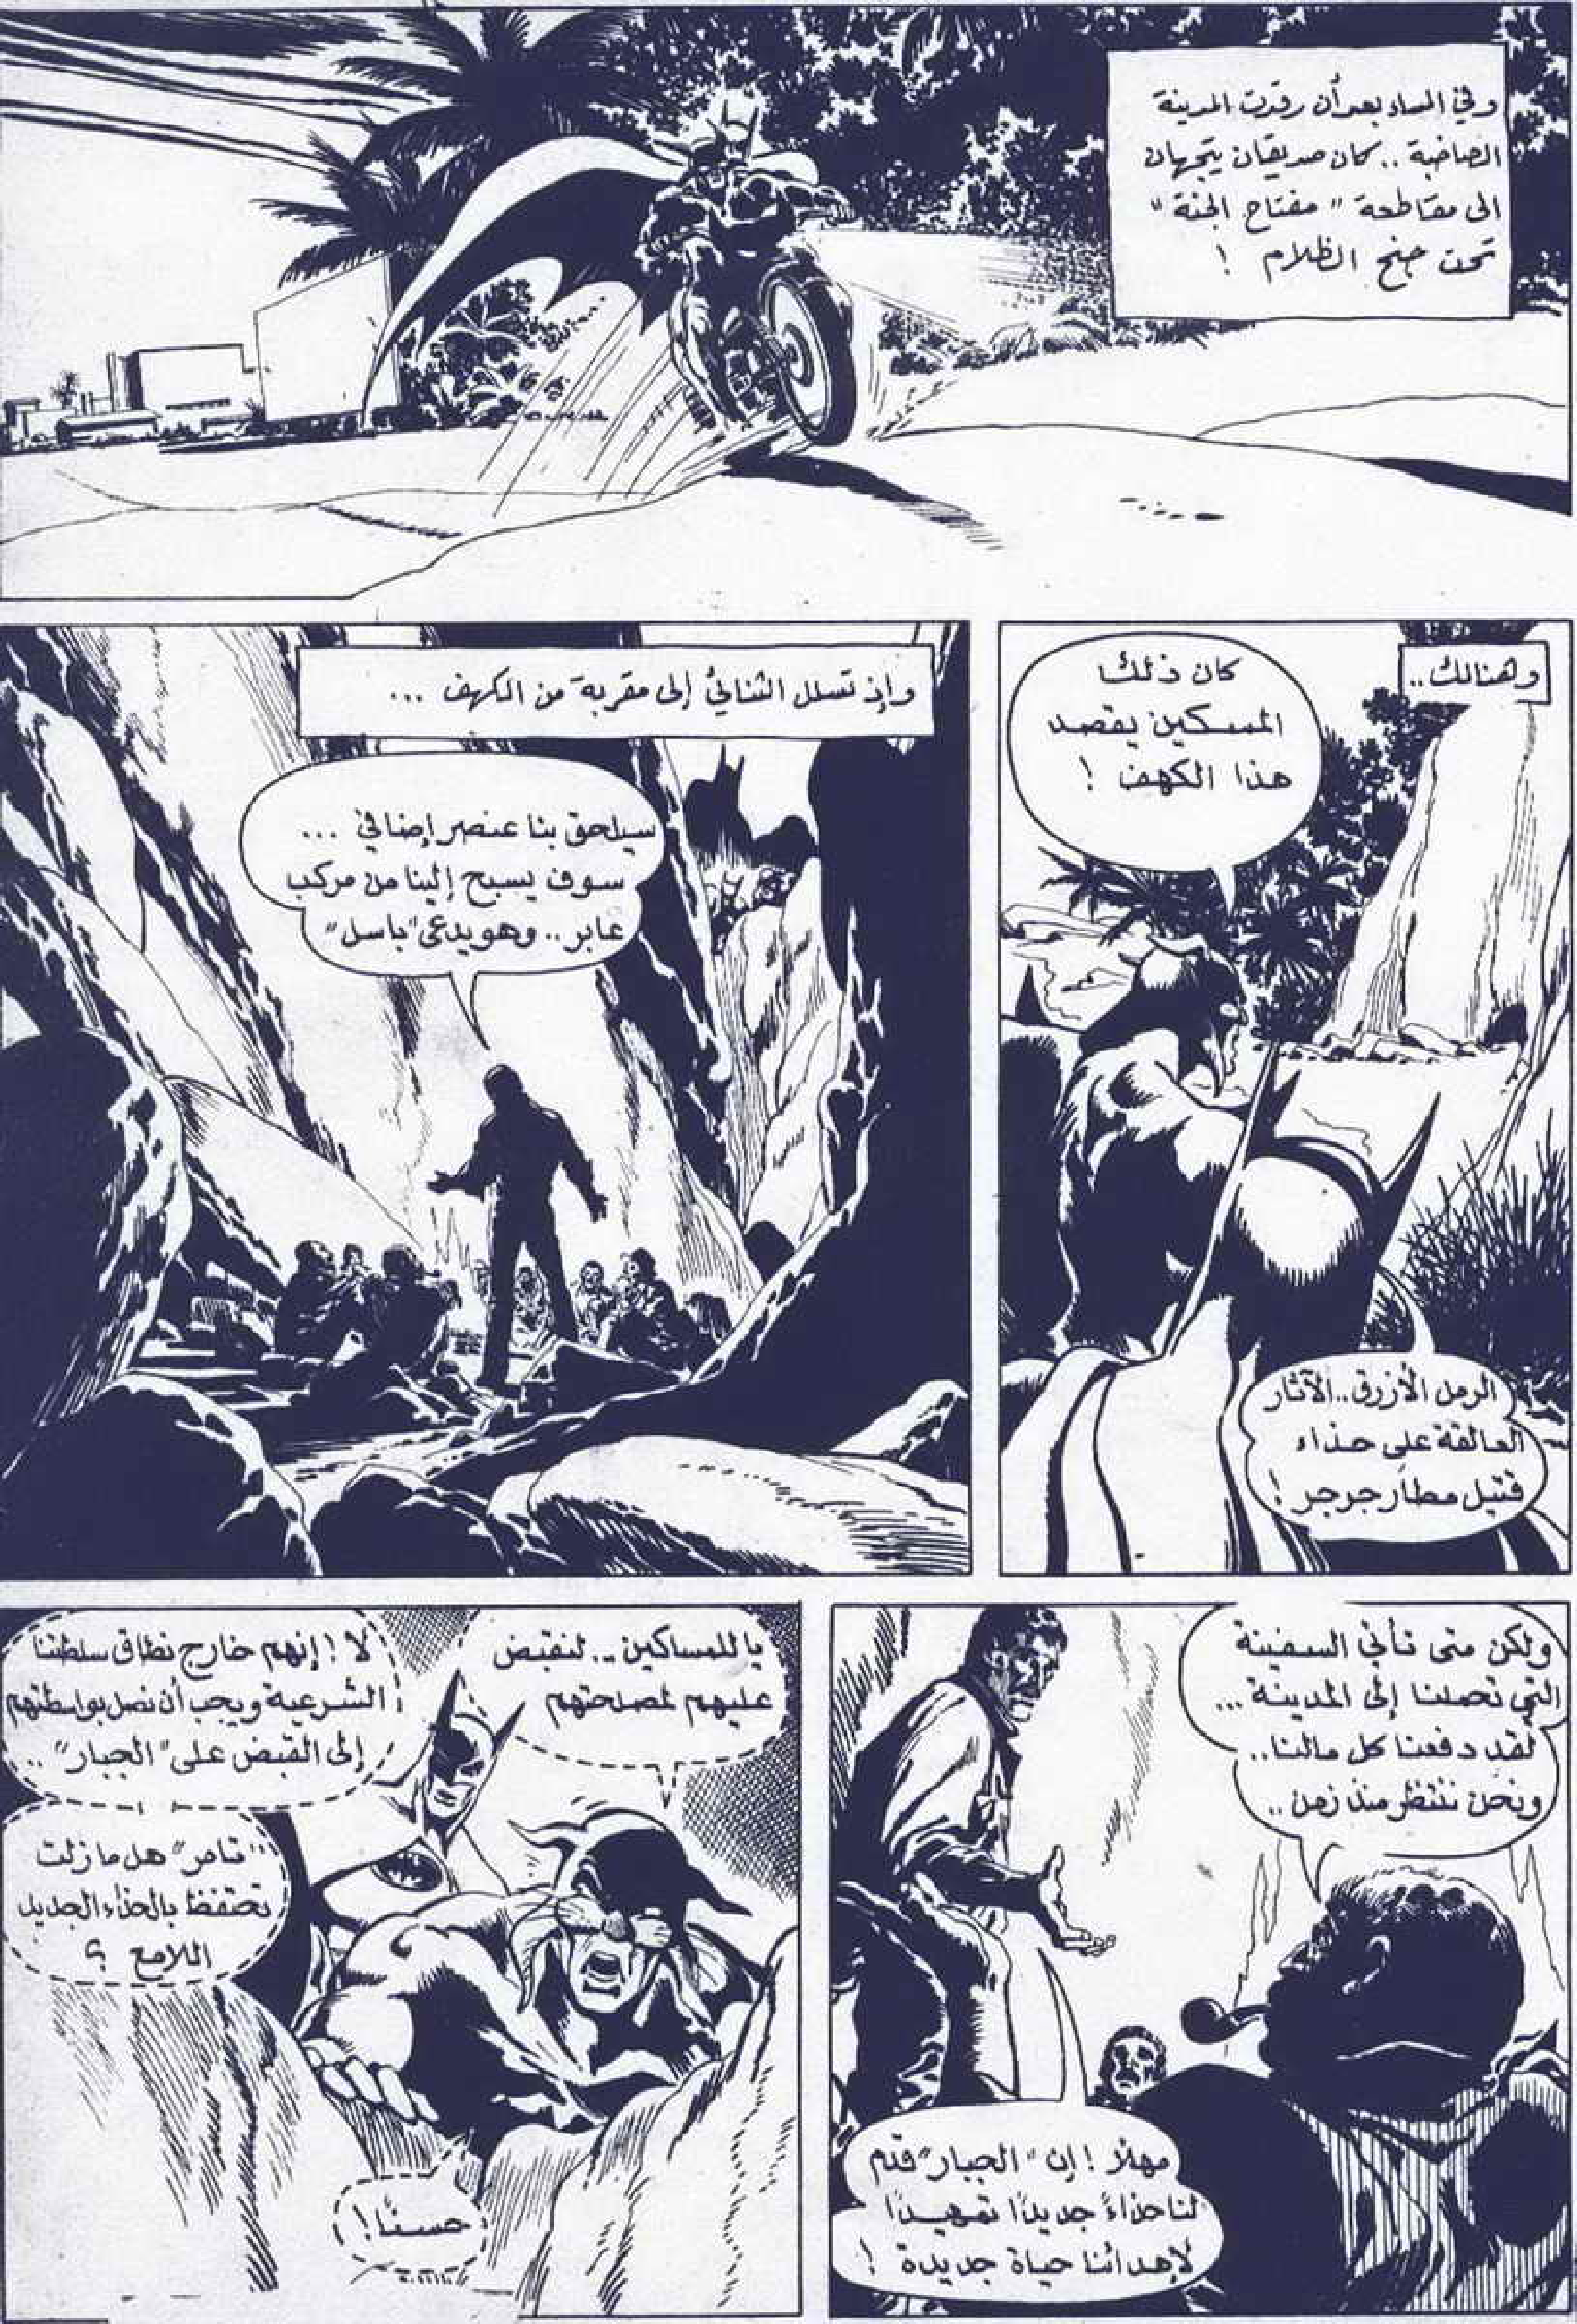 وفي المساء بعد أن رقدت المدينة
الصاخبة .. كان صديقان يتجهان
الى مقاطعة "مفتاح الجنة"
تحت جنح الظلام !
وهنالك..
كان ذلك
المسكين يقصد
هذا الكهف !
الرمل الأزرق..الآثار
العالقة على حذاء
قتيل مطار جرجر !
وإذ تسلل الثنائيُّ إلى مقربة من الكهف ...
سيلحق بنا عنصر إضافي ...
سوف يسبح إلينا من مركب
عابر .. وهو يدعى "باسل"
ولكن متى تأتي السفينة
التي تحملنا إلى المدينة ...
لقد دفعنا كل مالنا..
ونحن ننتظر منذ زمن ..
مهلًا ! إن "الجبار" قدم
لنا حذاءً جديدًا تمهيدًا
لإهدائنا حياة جديدة !
يا للمساكين .. لنقبض
عليهم لمصلحتهم
لا ! إنهم خارج نطاق سلطتنا
الشرعية ويجب أن نصل بواسطتهم
إلى القبض على "الجبار" ..
"تامر" هل ما زلت
تحتفظ بالحذاء الجديد
اللامع ؟
حسنًا !